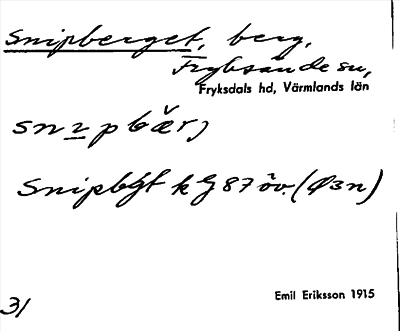 Snipberget, berg,
Fryksände sn,
Fryksdals hd, Värmlands län
Snipbgt k G 87 öv. (Ø3n)
Emil Eriksson 1915
31